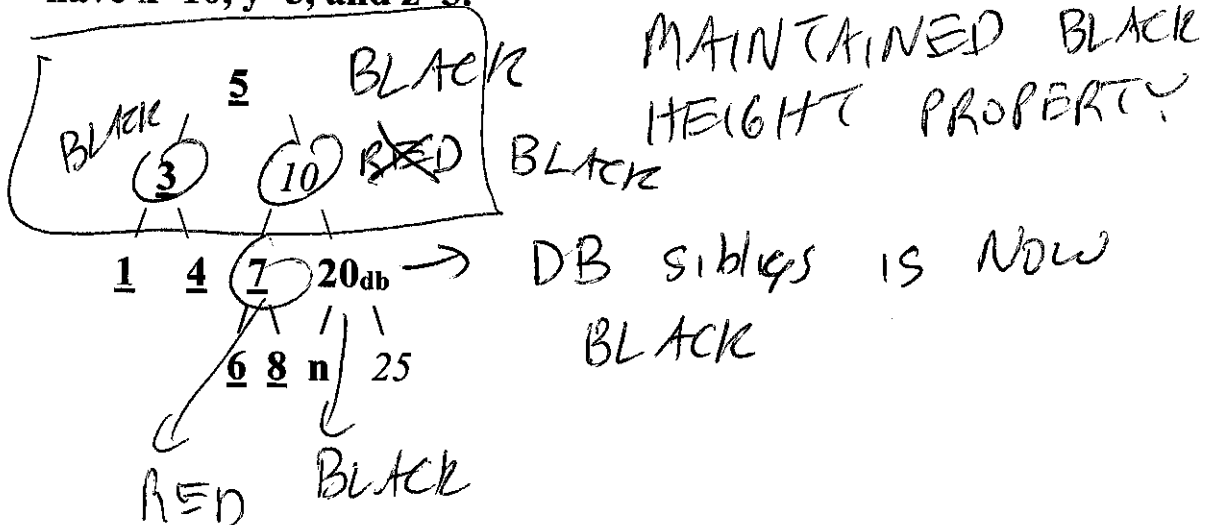 MAINTAINED BLACK
HEIGHT PROPERTY
5 BLACK
BLACK
3 10 RED BLACK
1 4 7 20db → DB siblings is NOW
BLACK
6 8 n 25
RED BLACK